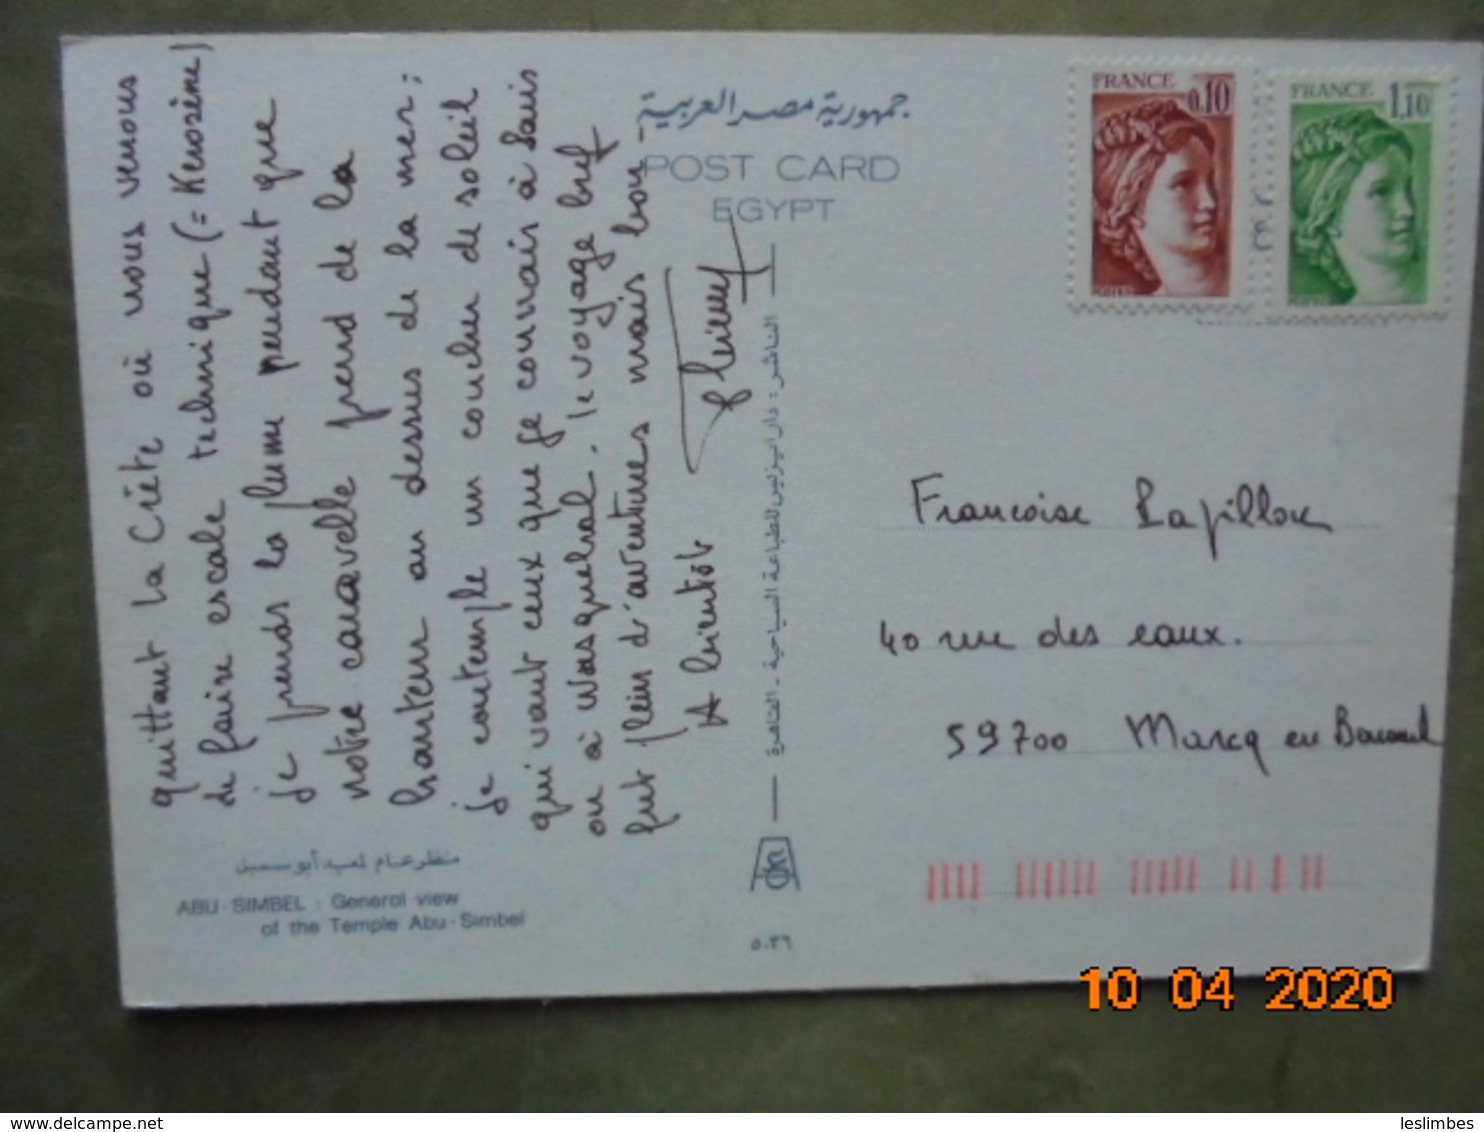 quittant la Crète où nous venons
de faire escale technique (= Kerosène)
je prends la plume pendant que
notre caravelle prend de la
hauteur au dessus de la mer ;
je contemple un coucher de soleil
qui vaut ceux que je connais à Sais
ou à Wasquehal. le voyage bref
fut plein d'aventures mais bon
A bientôt
جمهورية مصر العربية
POST CARD
EGYPT
الناشر : دار ايزيس للطباعة السياحية - القاهرة
FRANCE
0,10
FRANCE
1,10
Francoise Papillon
40 rue des eaux.
59700 Marcq en Baroeul
منظر عام لمعبد أبو سمبل
ABU-SIMBEL : General view
of the Temple Abu-Simbel
٥٠٣٦
10 04 2020
leslimbes